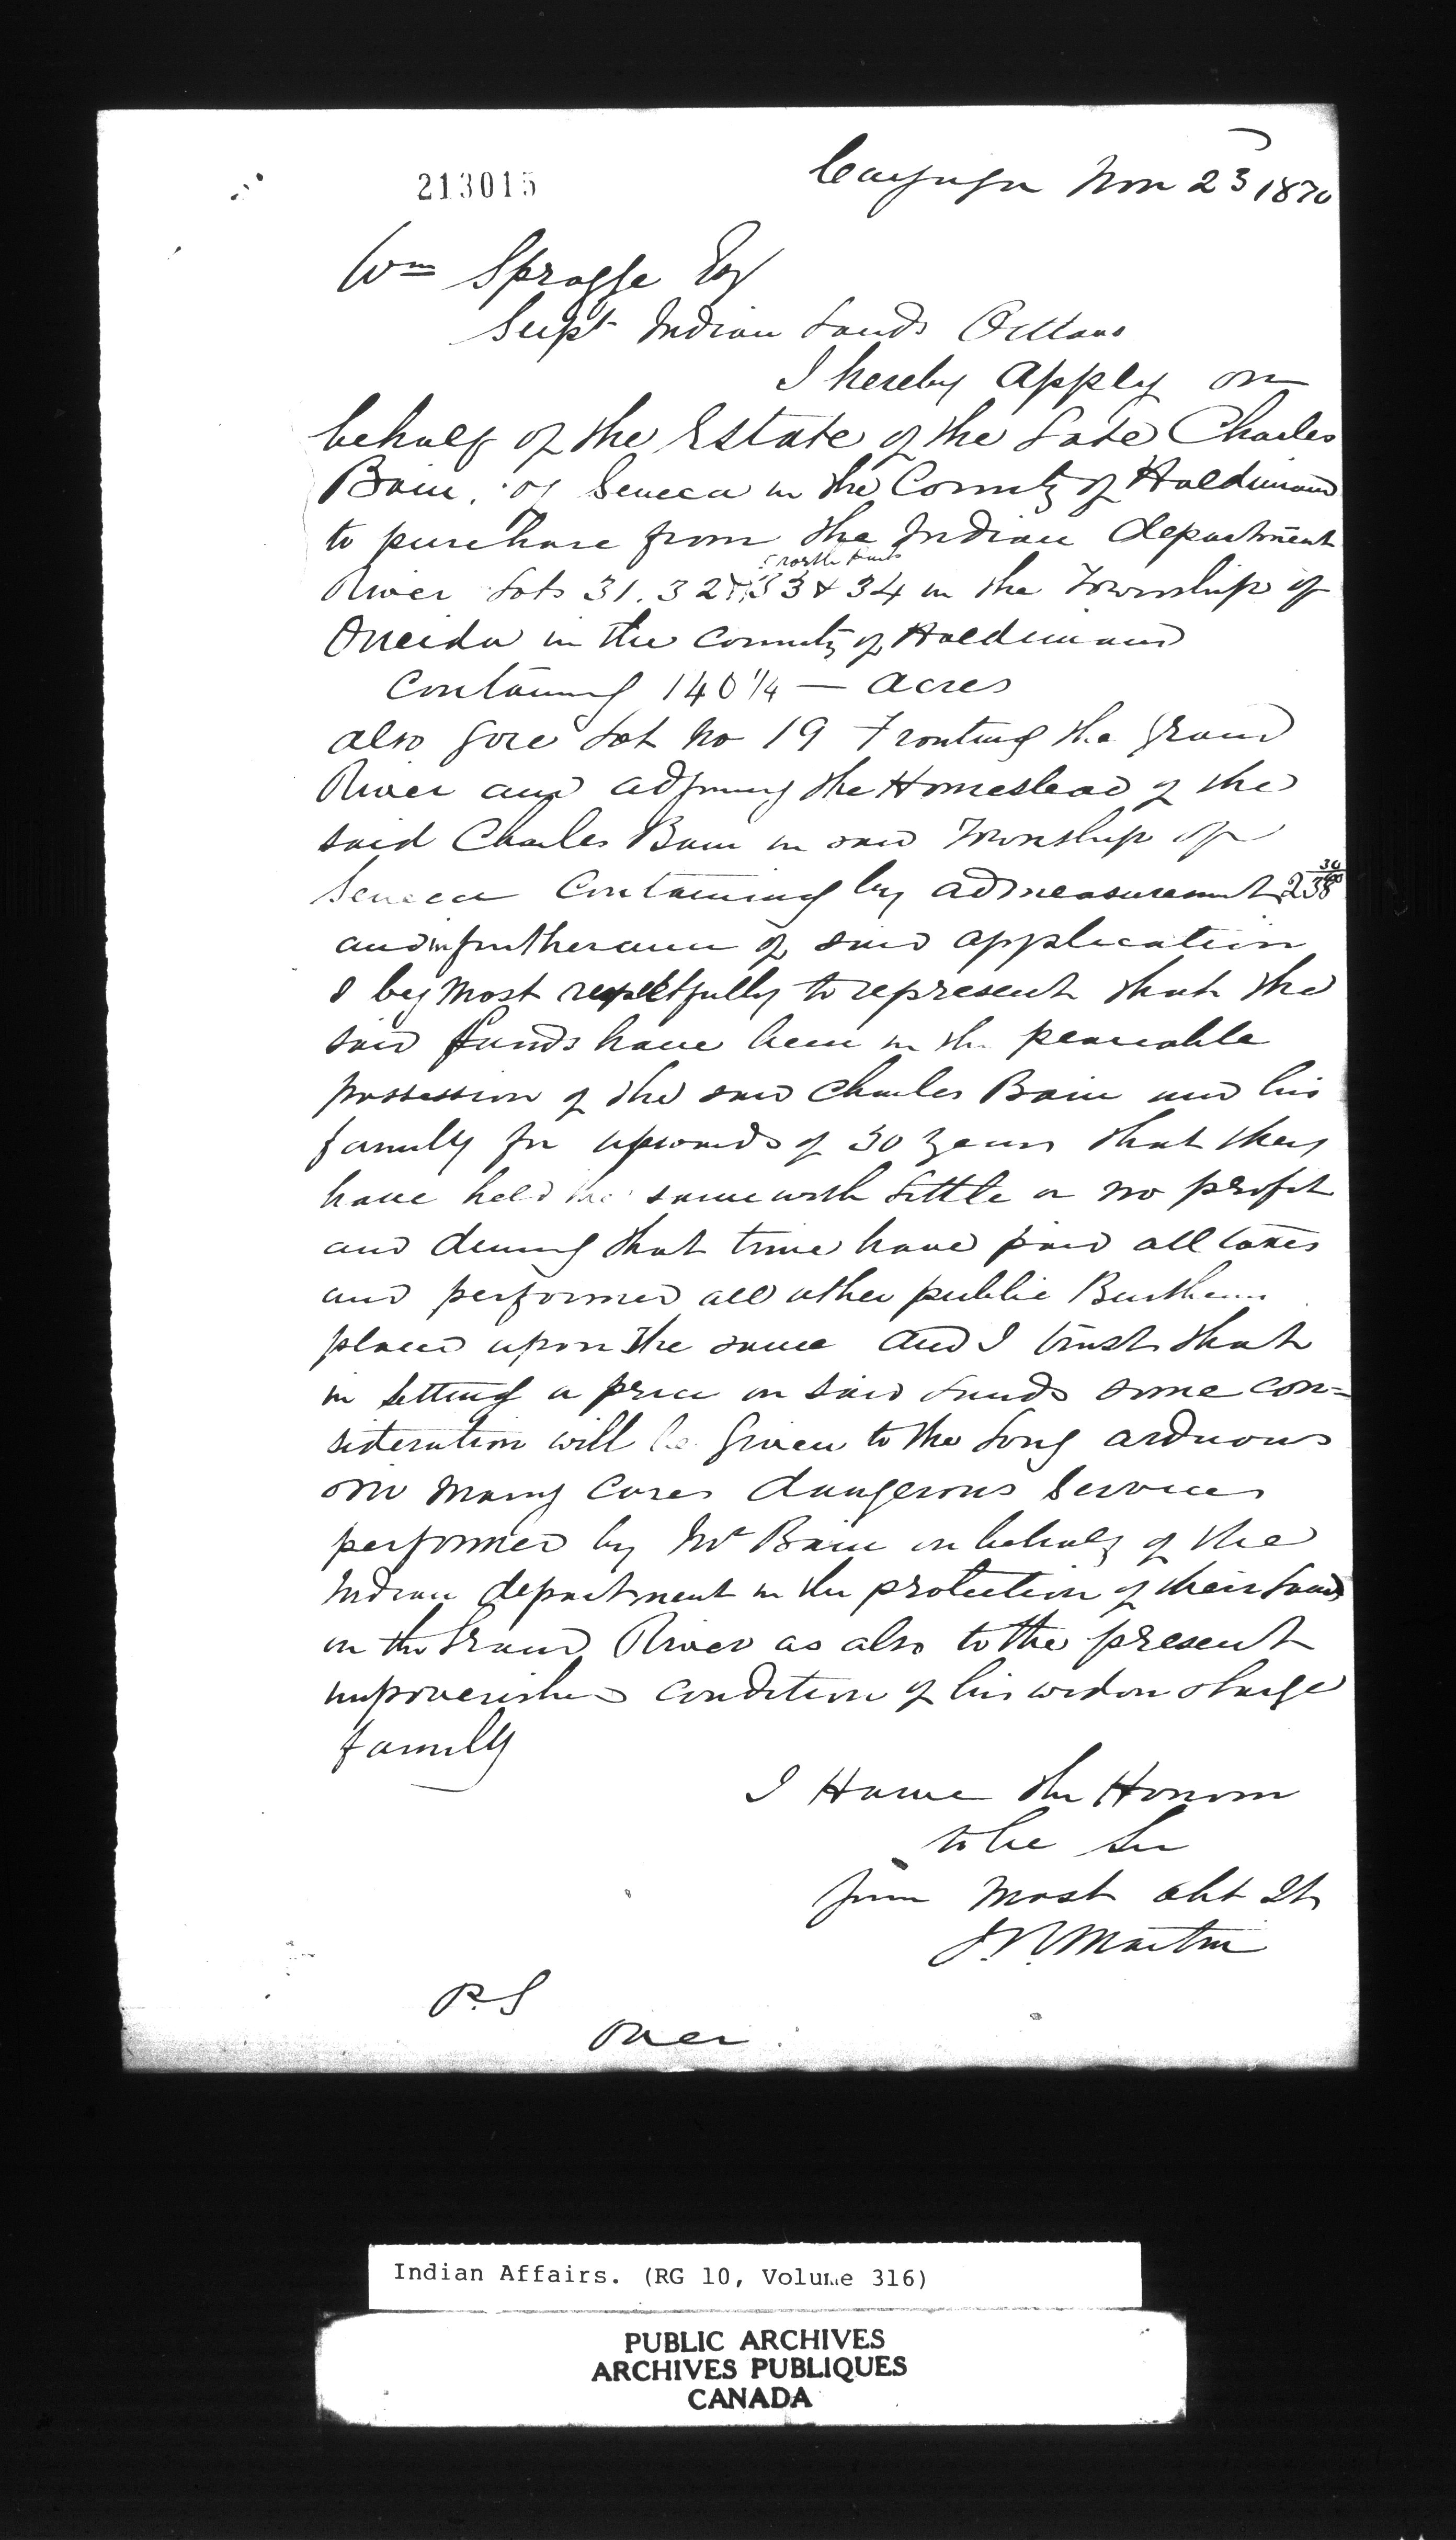 213015
Cayuga Nov 23 1870
Wm Spragge Esq
Supt Indian Lands Ottawa
I hereby apply on
behalf of the Estate of the Late Charles
Bain, of Seneca in the County of Haldimand
to purchase from the Indian department
north parts
River Lots 31. 32 33 & 34 in the Township of
Oneida in the county of Haldimand
Containing 140 1/4 — acres
also Gore Lot No 19 Fronting the Grand
River and adjoining the Homestead of the
said Charles Bain in said Township of
Seneca Containing by admeasurement
and in furtherance of said application
I beg most respectfully to represent that the
said Lands have been in the peaceable
possession of the said Charles Bain and his
family for upwards of 30 years that they
have held the same with little or no profit
and during that time have paid all taxes
and performed all other public Burthens
placed upon the same and I trust that
in setting a price on said Lands some con=
sideration will be given to the Long arduous
and in many cases dangerous Services
performed by Mr Bain on behalf of the
Indian department in the protection of their Lands
on the Grand River as also to the present
impoverished condition of his widow & large
family
I Have the Honour
to be Sir
your most obt St
J. V. Martin
P.S
Over
Indian Affairs. (RG 10, Volume 316)
PUBLIC ARCHIVES
ARCHIVES PUBLIQUES
CANADA